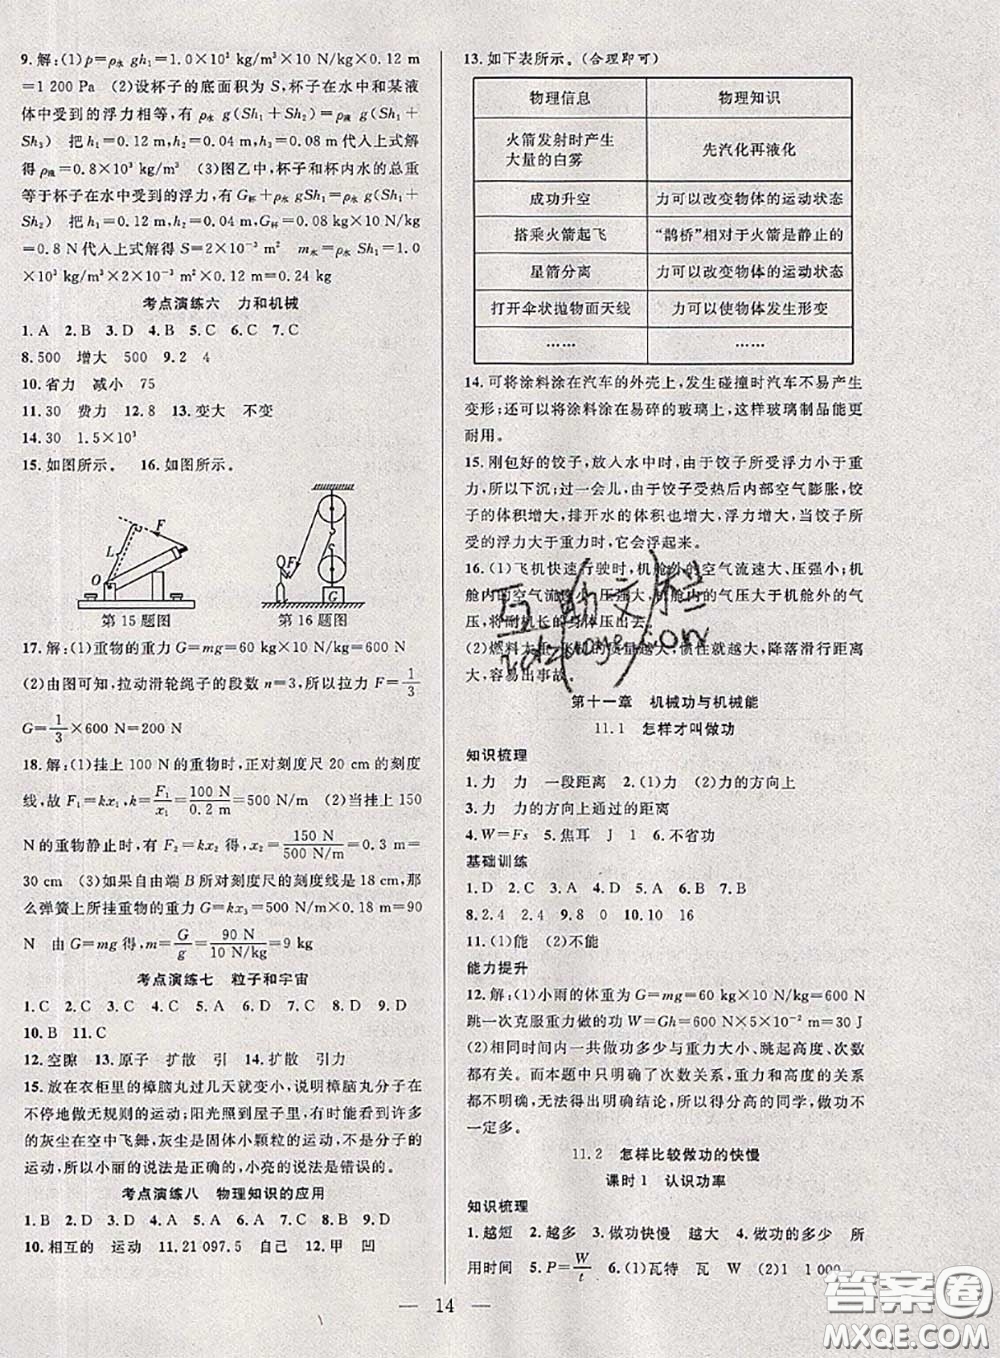 9.解:(1)p=ρ水 gh₁=1.0×10³ kg/m³×10 N/kg×0.12 m
=1 200 Pa (2)设杯子的底面积为 S,杯子在水中和某液
体中受到的浮力相等,有 ρ水 g(Sh₁+Sh₂)=ρ液 g(Sh₁+
Sh₃) 把 h₁=0.12 m,h₂=0.04 m,h₃=0.08 m代入上式解
得 ρ液=0.8×10³ kg/m³ (3)图乙中,杯子和杯内水的总重
等于杯子在水中受到的浮力,有 G杯+ρ水 gSh₁=ρ水 g(Sh₁+
Sh₂) 把 h₁=0.12 m,h₂=0.04 m,G杯=0.08 kg×10 N/kg
=0.8 N代入上式解得 S=2×10⁻³ m² m水=ρ水 Sh₁=1.0
×10³ kg/m³×2×10⁻³ m²×0.12 m=0.24 kg
考点演练六 力和机械
1.A 2.B 3.D 4.B 5.C 6.C 7.C
8.500 增大 500 9.2 4
10.省力 减小 75
11.30 费力 12.8 13.变大 不变
14.30 1.5×10³
15.如图所示。 16.如图所示。
L F O
F G
第15题图 第16题图
17.解:(1)重物的重力 G=mg=60 kg×10 N/kg=600 N
(2)由图可知,拉动滑轮绳子的段数 n=3,所以拉力 F=1/3
G=1/3×600 N=200 N
18.解:(1)挂上 100 N 的重物时,正对刻度尺 20 cm 的刻度
线,故 F₁=kx₁,k=F₁/x₁=100 N/0.2 m=500 N/m (2)当挂上 150
N 的重物静止时,有 F₂=kx₂ 得,x₂=150 N/500 N/m=0.3 m=
30 cm (3)如果自由端 B 所对刻度尺的刻度线是 18 cm,那
么弹簧上所挂重物的重力 G=kx₃=500 N/m×0.18 m=90
N 由 G=mg 得,m=G/g=90 N/10 N/kg=9 kg
考点演练七 粒子和宇宙
1.C 2.C 3.C 4.C 5.A 6.D 7.C 8.C 9.D
10.B 11.C
12.空隙 13.原子 扩散 引 14.扩散 引力
15.放在衣柜里的樟脑丸过几天就变小,说明樟脑丸分子在
不停地做无规则的运动;阳光照到屋子里,有时会看到许多
的灰尘在空中飞舞,灰尘是固体小颗粒的运动,不是分子的
运动,所以小丽的说法是正确的,小亮的说法是错误的。
考点演练八 物理知识的应用
1.B 2.D 3.D 4.B 5.D 6.C 7.A 8.B 9.D
10.相互的 运动 11.21 097.5 自己 12.甲 凹
13.如下表所示。(合理即可)
物理信息 物理知识
火箭发射时产生
大量的白雾 先汽化再液化
成功升空 力可以改变物体的运动状态
搭乘火箭起飞 “鹊桥”相对于火箭是静止的
星箭分离 力可以改变物体的运动状态
打开伞状抛物面天线 力可以使物体发生形变
…… ……
14.可将涂料涂在汽车的外壳上,发生碰撞时汽车不易产生
变形;还可以将涂料涂在易碎的玻璃上,这样玻璃制品能更
耐用。
15.刚包好的饺子,放入水中时,由于饺子所受浮力小于重
力,所以下沉;过一会儿,由于饺子受热后内部空气膨胀,饺
子的体积增大,排开水的体积也增大,浮力增大,当饺子所
受的浮力大于重力时,它会浮起来。
16.(1)飞机快速行驶时,机舱外的空气流速大、压强小;机
舱内的空气流速小、压强大,机舱内的气压大于机舱外的气
压,将副机长的身体压出去。
(2)燃料太重,飞机的质量越大,惯性就越大,降落滑行距离
大,容易出事故。
第十一章 机械功与机械能
11.1 怎样才叫做功
知识梳理
1.力 力 一段距离 2.(1)力 (2)力的方向上
3.力 力的方向上通过的距离
4.W=Fs 5.焦耳 J 1 6.不省功
基础训练
1.D 2.C 3.C 4.A 5.B 6.D 7.B
8.2.4 2.4 9.8 0 10.10 16
11.(1)能 (2)不能
能力提升
12.解:(1)小雨的体重为 G=mg=60 kg×10 N/kg=600 N
跳一次克服重力做的功 W=Gh=600 N×5×10⁻² m=30 J
(2)相同时间内一共做功多少与重力大小、跳起高度、次数
都有关。而本题中只明确了次数关系,重力和高度的关系
都未明确,无法得出明确结论,所以得分高的同学,做功不
一定多。
11.2 怎样比较做功的快慢
课时1 认识功率
知识梳理
1.越短 2.越多 3.做功快慢 越大 4.做功的多少 所
用时间 5.P=W/t 6.(1)瓦特 瓦 W (2)1 1 000
14
互助文栏
答案圈
MXQE.COM